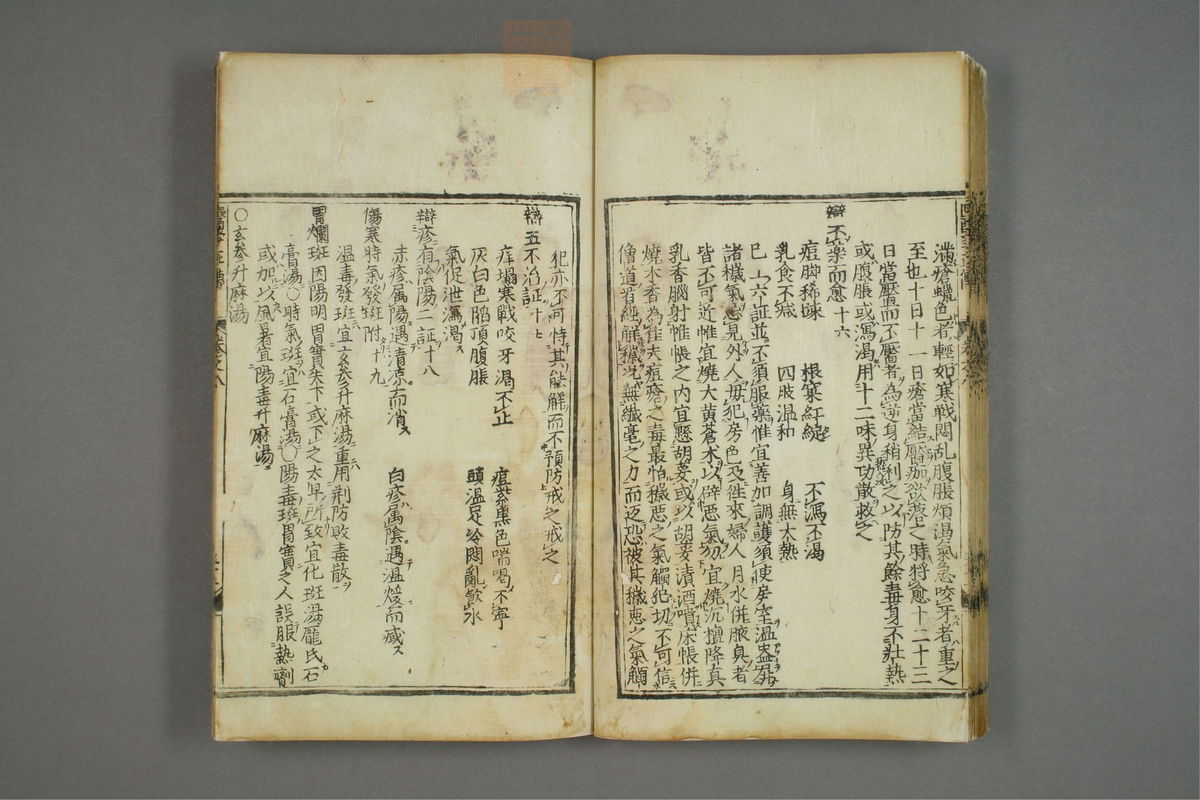 滿瘡蠟色者輕如寒戰悶乱腹脹煩渴氣急咬牙者重之
至也十日十一日瘡當結靨痂欲落之時將愈十二十三
日當靨而不靨者為逆身稍利之以防其餘毒身不壮熱
或腹脹或瀉渴用十二味異功散救之
辯不藥而愈十六
痘脚稀踈 根窠紅綻 不瀉不渴
乳食不减 四肢温和 身無大熱
已上六証並不須服藥惟宜善加調護須使房室温盎屏
諸穢氣忌見外人毋犯房色及徃來婦人月水併腋臭者
皆不可近惟宜燒大黄蒼术以辟悪氣勿宜燒沉檀降真
乳香腦射惟帳之内宜懸胡荽或以胡荽漬酒噴床帳併
燒木香為佳夫痘瘡之毒最怕穢悪之氣觸犯切不可信
僧道看經解穢况無纎毫之力而返恐被其穢悪之氣觸
犯亦不可恃其能解而不預防戒之戒之
辯五不治証十七
痒塌寒戰咬牙渴不止 痘紫黒色喘喝不寧
灰白色陷頂腹脹 頭温足冷悶亂飲水
氣促泄瀉渴
辯疹有陰陽二証十八
赤疹属陽遇清凉而消 白疹属陰遇温煖而滅
傷寒時氣發班附十九
温毒發班宜玄参升麻湯重用荆防敗毒散
胃爛班因陽明胃實失下或下之太早所致宜化班湯龎氏石
膏湯○時氣班宜石膏湯○陽毒班胃實之人誤服熱劑
或加以風暑宜陽毒升麻湯
○玄参升麻湯